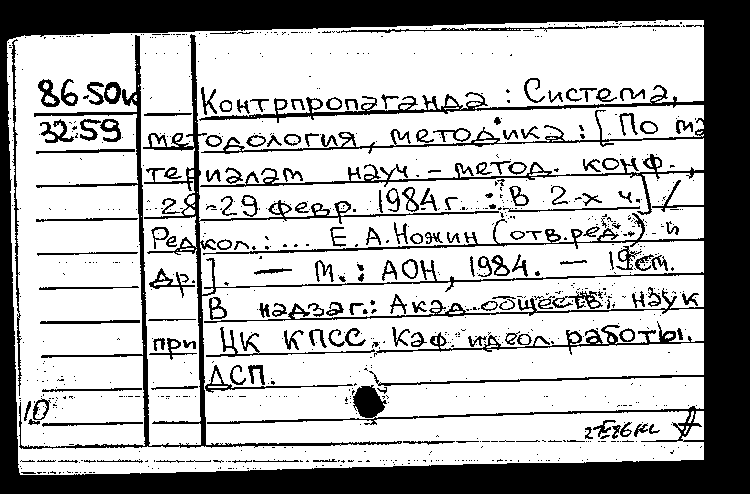 86-50к
32:59
Контрпропаганда : Система,
методология, методика : [По ма
териалам науч.-метод. конф.,
28-29 февр. 1984 г. : В 2-х ч.] /
Редкол.: ... Е.А.Ножин (отв.ред.) и
др.]. — М. : АОН, 1984. — 19см.
В надзаг.: Акад. обществ. наук
при ЦК КПСС. Каф. идеол. работы.
ДСП.
10